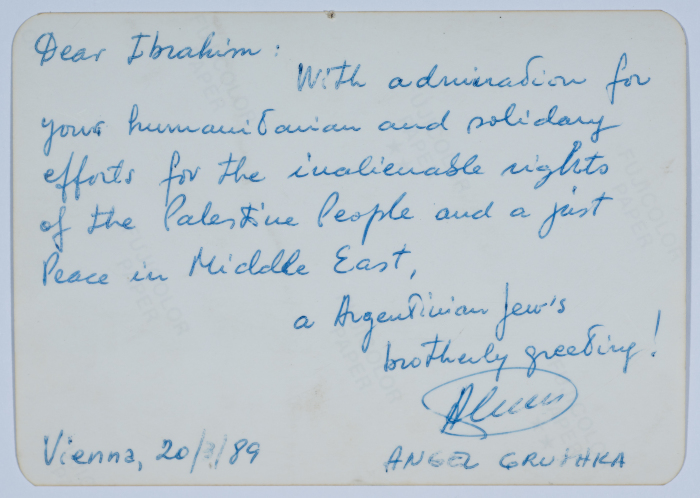 Dear Ibrahim:
With admiration for
your humanitarian and solidary
efforts for the inalienable rights
of the Palestine People and a just
Peace in Middle East,
a Argentinian Jew's
brotherly greeting!
Vienna, 20/3/89
ANGEL GRUSHKA
FUJICOLOR
PAPER
FUJICOLOR
PAPER
FUJICOLOR
PAPER